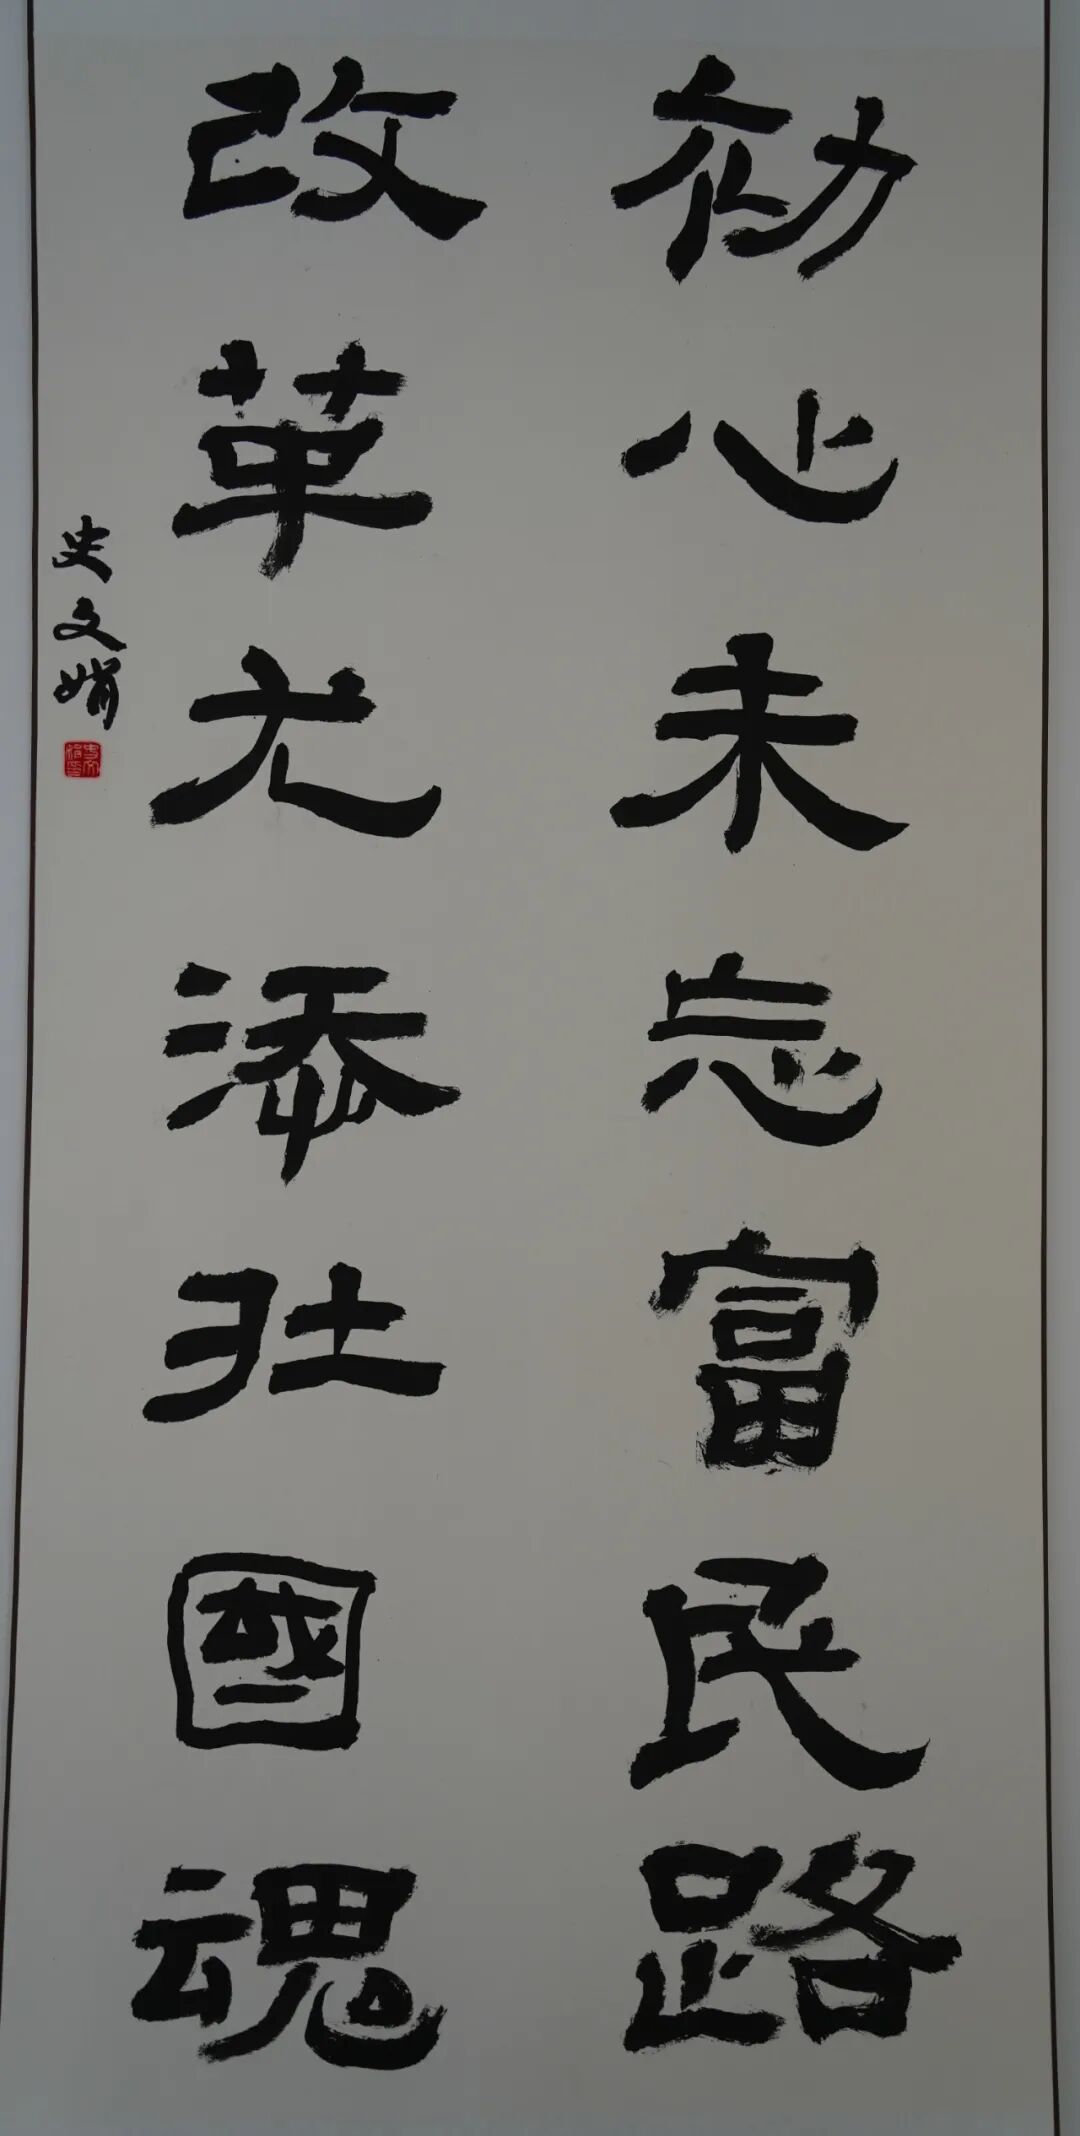 初心未忘富民路
改革尤添壯國魂
史文娟